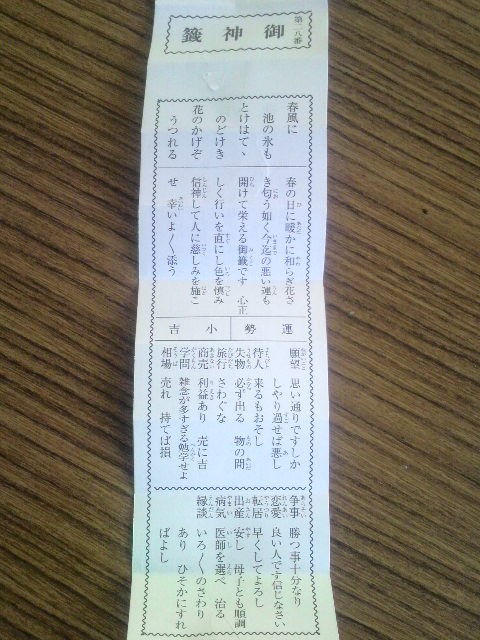 第二八番
御神籤
春風に
池の氷も
とけはてゝ
のどけき
花のかげぞ
うつれる
春の日に暖かに和らぎ花さ
き匂う如く今迄の悪い運も
開けて栄える御籤です 心正
しく行いを直にし色を慎み
信神して人に慈しみを施こ
せ 幸いよ〳〵添う
運勢 小吉
願望 思い通りですしか
しやり過せば悪し
待人 来るもおそし
失物 必ず出る 物の間
旅行 さわぐな
商売 利益あり 売に吉
学問 雑念が多すぎる勉学せよ
相場 売れ 持てば損
争事 勝つ事十分なり
恋愛 良い人です信じなさい
転居 早くしてよろし
出産 安し 母子とも順調
病気 医師を選べ 治る
縁談 いろ〳〵のさわり
あり ひそかにすれ
ばよし